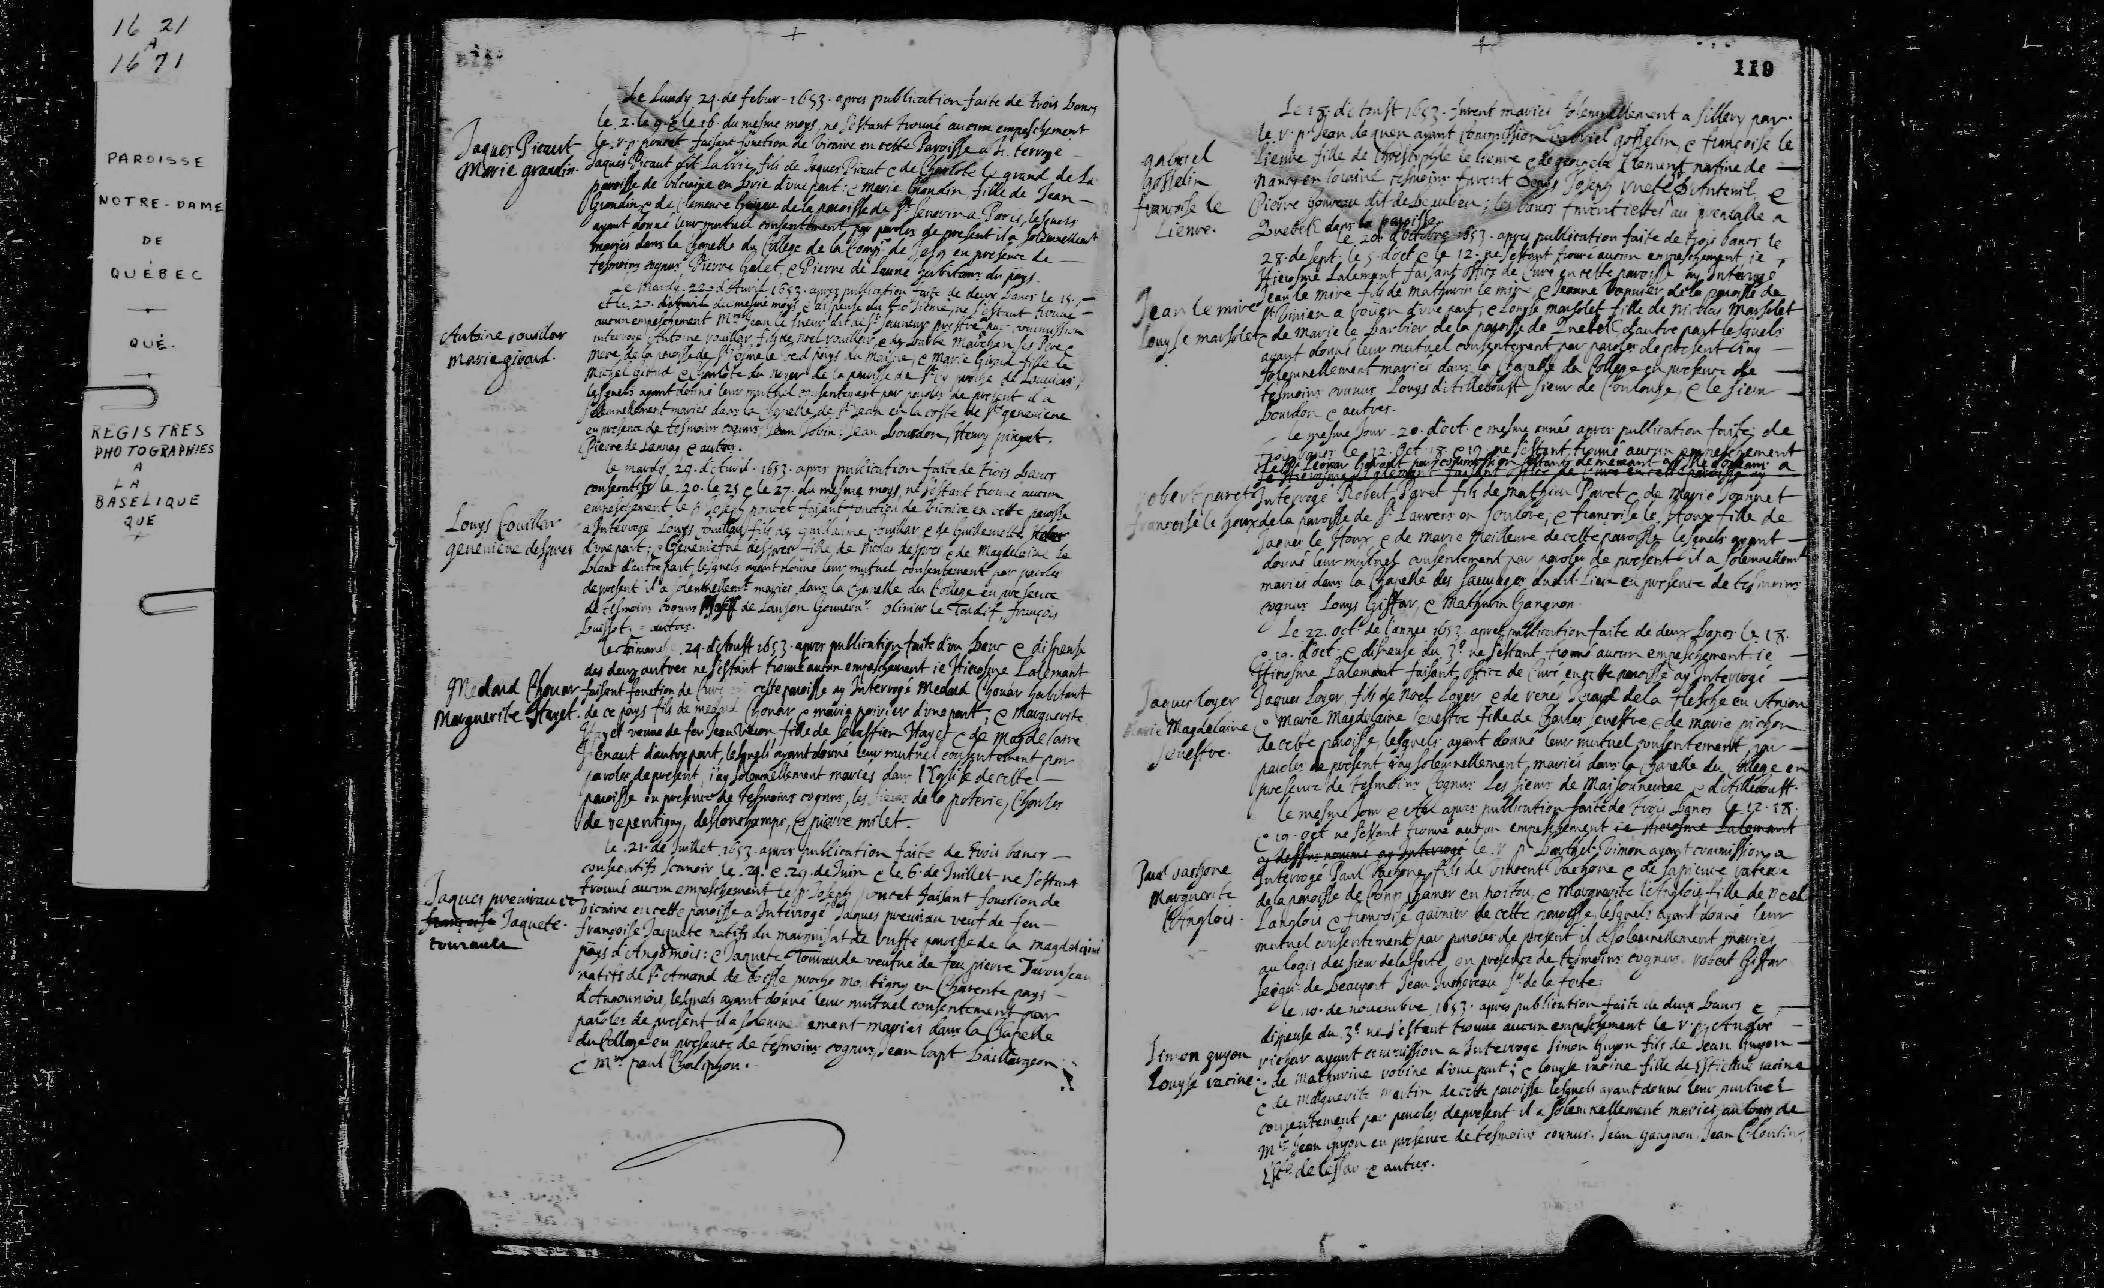 16 21
A
16 71
PAROISSE
NOTRE-DAME
DE
QUÉBEC
QUÉ.
REGISTRES
PHOTOGRAPHIES
A
LA
BASELIQUE
QUE
Le Lundy 24. de febur. 1653. apres publication faite de trois bancs
le 2. le 9 & le 16. du mesme moys, ne s'estant trouué aucun empeschement
Jaques Picaut
Marie grandin.
le r. p. poncet faisant fonction de Vicaire en cette Paroisse a Interrogé
Jaques Picaut dit Labrie, fils de Jaques Picaut & de Charlote le grand de la
paroisse de en brie d'vne part: & marie Grandin fille de Jean
Grandin & de Clemence de la paroisse de St Seuerin a Paris, lesquels
ayant donné leur mutuel consentement par paroles de present il a solennellement
mariés dans la Chapelle du College de la Comp. de Jesus en presence de
tesmoins cognus Pierre Galet, & Pierre de Launé habitans du pays.
Le Mardy 22. d'Auril 1653. apres publication faite de deux bancs le 15.
et le 20. du mesme moys, & dispense du troisieme, ne s'estant trouué
aucun empeschement Mre Jean le Sueur dit de St Sauueur prestre par commission
Antoine rouillar
marie girard.
interrogé Antoine rouillar, fils de noel rouillar & de ses Pere &
Mere de la paroisse de St pays du Maine, & Marie Girard fille de
Michel girard & Charlote du de la paroisse de St Cyr proche de Louuiers,
lesquels ayant donné leur mutuel consentement par paroles de present il a
solennellement mariés dans la chapelle de St Jean en la coste de Ste geneuiene
en presence de tesmoins cognus, Jean Jobin, Jean bourdon, Henry pinguet.
Pierre de Launay & autres.
le mardy 29. d'Auril. 1653. apres publication faite de trois bancs
consecutifs le .20. le 25 & le 27. du mesme moys, ne s'estant trouué aucun
empeschement le p. Joseph poncet faisant fonction de Vicaire en cette paroisse
Louys Couillar
geneuieue despres
a Interrogé Louys Couillar fils de Guillaume Couillar & de Guillemette
d'vne part; & Geneuiefue despres fille de Nicolas despres & de Magdelaine le
blanc d'autre part lesquels ayant donné leur mutuel consentement par paroles
de present il a solennellement mariés dans la Chapelle du College en presence
de tesmoins cognus de Lauson Gouuernr. oliuier le Tardif, françois
bissot, & autres.
le 24. d'Aoust 1653. apres publication faite d'vn banc & dispense
des deux autres ne s'estant trouué aucun empeschement ie Hierosme Lalemant
Medard Chouar
Marguerite Hayet.
faisant fonction de Curé en cette paroisse ay Interrogé Medard Chouar habitant
de ce pays fils de medard Chouar & marie poirier d'vne part; & Marguerite
Hayet veuue de feu Jean Veron, fille de Sebastien Hayet & de Magdelaine
Henaut d'autre part, lesquels ayant donné leur mutuel consentement par
paroles de present, i'ay solennellement mariés dans l'Eglise de cette
paroisse en presence de tesmoins cognus, les sieurs de la poterie, Charles
de repentigny, deslonchamps, & pierre milet.
le .21. de Juillet .1653. apres publication faite de trois bancs
consecutifs scauoir le .24. & .29. de Juin & le 6. de Juillet ne s'estant
trouué aucun empeschement le p. Joseph poncet faisant fonction de
Jaques preuirau &
françoise Jaquete
touraude
vicaire en cette paroisse a Interrogé Jaques preuirau veuf de feu
françoise Jaquete natifs du marquisat de Ruffec paroisse de la magdelaine
pays d'Angomois: & Jaquete Touraude veufue de feu pierre
natifs de St Amand de proche en Charente pays
d'Angoumois, lesquels ayant donné leur mutuel consentement par
paroles de present il a solennellement mariés dans la Chapelle
du College en presence de tesmoins cognus, Jean bapt. bailliargeon
& Mre Paul Chalifou.
119
Le 18. d'Aoust 1653. furent mariés solennellement a Sillery par
le r. p. Jean de quen ayant commission Gabriel gosselin, & françoise le
gabriel
Gosselin
françoise le
Lieure.
Lieure fille de Christophle le lieure & de georgete Clement natiue de
nancy en loraine tesmoins furent Denys Joseph Ruete d'Auteuil, &
Pierre boiueau dit de beaulieu; les bancs furent iettés au prealable a
Quebek dans la paroisse
le 20. d'octobre 1653. apres publication faite de trois bancs le
28. de sept. le 5. d'oct & le 12. ne s'estant trouué aucun empeschement, ie
Hierosme Lalemant faisant office de Curé en cette paroisse ay Interrogé
Jean le mire
Louyse marsolet
Jean le mire fils de mathurin le mire, & Jeanne vannier de la paroisse de
St Viuien a Rouen d'vne part; & Louyse marsolet fille de Nicolas Marsolet
& de Marie le barbier de la paroisse de Quebek d'autre part lesquels
ayant donné leur mutuel consentement par paroles de present i'ay
solennellement mariés dans la Chapelle du College en presence de
tesmoins connus Louys d'Aillebouft sieur de Coulonge, & le sieur
bourdon & autres.
le mesme Jour .20. d'oct. & mesme année apres publication faite de
trois bancs le .12. oct. 18 & 19. ne s'estant trouué aucun empeschement
robert paret
françoise le houx
Interrogé Robert Paret fils de mathieu Paret & de Marie Joannet
de la paroisse de St Laurens en Soulore, & françoise le Houx fille de
Jaques le Houx & de marie Meilleure de cette paroisse lesquels ayant
donné leur mutuel consentement par paroles de present il a solennellemt
mariés dans la Chapelle des Sauuages dudit Lieu en presence de tesmoins
cognus Louys Giffar, & Mathurin Gangnon.
Le .22. oct. de l'année 1653. apres publication faite de deux bancs le 18.
& 19. d'oct. & dispense du 3e. ne s'estant trouué aucun empeschement ie
Hierosme Lalemant faisant office de Curé en cette paroisse ay Interrogé
Jaques loyer
Marie Magdelaine
Seuestre.
Jaques Loyer, fils de Noel Loyer & de renée de la flesche en Aniou
& Marie Magdelaine Seuestre fille de Charles Seuestre & de marie pichon
de cette paroisse, lesquels ayant donné leur mutuel consentement par
paroles de present i'ay solennellement mariés dans la Chapelle du College en
presence de tesmoins cognus Les sieurs de Maisonneuue & d'Aillebouft.
le mesme Jour & An apres publication faite de trois bancs le 12. 18.
& 19. oct ne s'estant trouué aucun empeschement ie Hierosme Lalemant
cy dessus nommé ay Interrogé le r. p. barthel. Vimon ayant commission a
Paul Vachone
Marguerite
l'Anglois.
Interrogé Paul Vachone fils de Vincent Vachone & de sapience vateau
de la paroisse de en poitou, & Marguerite l'Anglois, fille de noel
Langlois & françoise garnier de cette paroisse, lesquels ayant donné leur
mutuel consentement par paroles de present il a solennellement mariés
au logis de sieur de la ferté en presence de tesmoins cognus. robert Giffar
Seigr. de beauport Jean Juchereau sr. de la ferté;
le 10. de nouembre 1653. apres publication faite de deux bancs &
dispense du 3e. ne s'estant trouué aucun empeschement le r. p. Andre
Simon guyon
Louyse racine
richar ayant commission a Interrogé Simon Guyon fils de Jean Guyon
& de mathurine robine d'vne part; & louyse racine fille de Estienne racine
& de Marguerite martin de cette paroisse lesquels ayant donné leur mutuel
consentement par paroles de present il a solennellement mariés au logis de
Mre Jean guyon en presence de tesmoins connus. Jean Gangnon, Jean Cloutier,
Est. de lessar & autres.